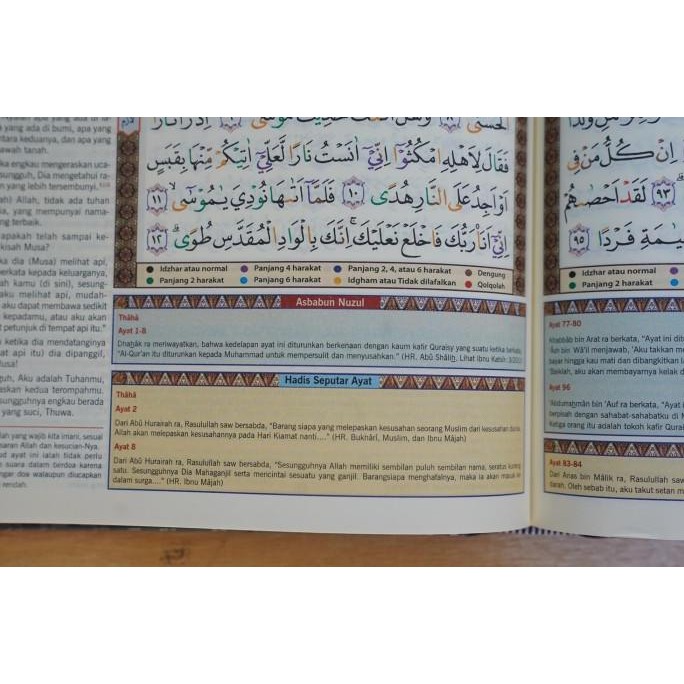 yang ada di bumi, apa yang
antara keduanya, dan apa yang
bawah tanah.
ka engkau mengeraskan uca-
sungguh, Dia mengetahui ra-
n yang lebih tersembunyi.
ah) Allah, tidak ada tuhan
ia, yang mempunyai nama-
ng terbaik.
apakah telah sampai ke-
kisah Musa?
ka dia (Musa) melihat api,
berkata kepada keluarganya,
ah kamu (di sini), sesung-
aku melihat api, mudah-
aku dapat membawa sedikit
kepadamu, atau aku akan
petunjuk di tempat api itu."
ketika dia mendatanginya
at api itu) dia dipanggil,
usa!
guh, Aku adalah Tuhanmu,
askan kedua terompahmu.
sungguhnya engkau berada
yang suci, Thuwa.
lah yang wajib kita imani, sesuai
saran Allah dan kesucian-Nya.
ud ayat ini ialah tidak perlu
suara dalam berdoa karena
ngar doa walaupun diucapkan
rendah.
فَقَالَ لِاَهْلِهِ امْكُثُوْٓا اِنِّيْٓ اٰنَسْتُ نَارًا لَّعَلِّيْٓ اٰتِيْكُمْ مِّنْهَا بِقَبَسٍ
اَوْ اَجِدُ عَلَى النَّارِ هُدًى ١٠ فَلَمَّآ اَتٰىهَا نُوْدِيَ يٰمُوْسٰٓى ۙ ١١
اِنِّيْٓ اَنَا۠ رَبُّكَ فَاخْلَعْ نَعْلَيْكَ ۚ اِنَّكَ بِالْوَادِ الْمُقَدَّسِ طُوًى ۗ ١٢
Idzhar atau normal Panjang 4 harakat Panjang 2, 4, atau 6 harakat Dengung
Panjang 2 harakat Panjang 6 harakat Idgham atau Tidak dilafalkan Qolqolah
Asbabun Nuzul
Thâhâ
Ayat 1-8
Dhaẖâk ra meriwayatkan, bahwa kedelapan ayat ini diturunkan berkenaan dengan kaum kafir Quraisy yang suatu ketika berkata,
"Al-Qur'an itu diturunkan kepada Muhammad untuk mempersulit dan menyusahkan." (HR. Abû Shâliẖ, Lihat Ibnu Katsîr:
Hadis Seputar Ayat
Thâhâ
Ayat 2
Dari Abû Hurairah ra, Rasulullah saw bersabda, "Barang siapa yang melepaskan kesusahan seorang Muslim dari kesusahan dunia,
Allah akan melepaskan kesusahannya pada Hari Kiamat nanti...." (HR. Bukhârî, Muslim, dan Ibnu Mâjah)
Ayat 8
Dari Abû Hurairah ra, Rasulullah saw bersabda, "Sesungguhnya Allah memiliki sembilan puluh sembilan nama, seratus kurang
satu. Sesungguhnya Dia Mahaganjil serta mencintai sesuatu yang ganjil. Barangsiapa menghafalnya, maka ia akan masuk ke
dalam surga...." (HR. Ibnu Mâjah)
اِنْ كُلُّ مَنْ فِى
٩٣ لَقَدْ اَحْصٰىهُمْ
يٰمَةِ فَرْدًا ٩٥
Idzhar atau normal
Panjang 2 harakat
Ayat 77-80
Khabbâb bin Arat ra berkata, "Ayat ini
bin Wâ'il menjawab, 'Aku takkan
bayar hingga kau mati dan dibangkitkan
Baiklah, aku akan membayarnya kelak
Ayat 96
'Abdurraẖmân bin 'Auf ra berkata, "Ayat
berpisah dengan sahabat-sahabatku di
Ketiga orang itu adalah tokoh kafir
Ayat 83-84
Dari Anas bin Mâlik ra, Rasulullah
darah. Oleh sebab itu, aku takut setan